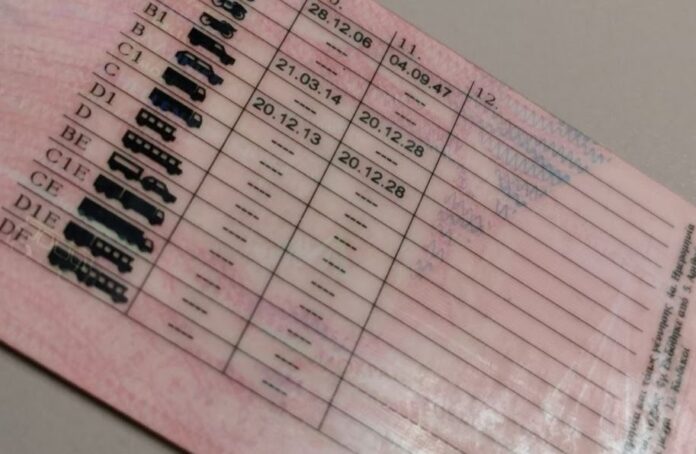 B1
B
C1
C
D1
D
BE
C1E
CE
D1E
DE
28.12.06
----
21.03.14
----
20.12.13
----
----
----
----
----
----
11.
04.09.47
----
20.12.28
----
20.12.28
----
----
----
----
----
----
12.